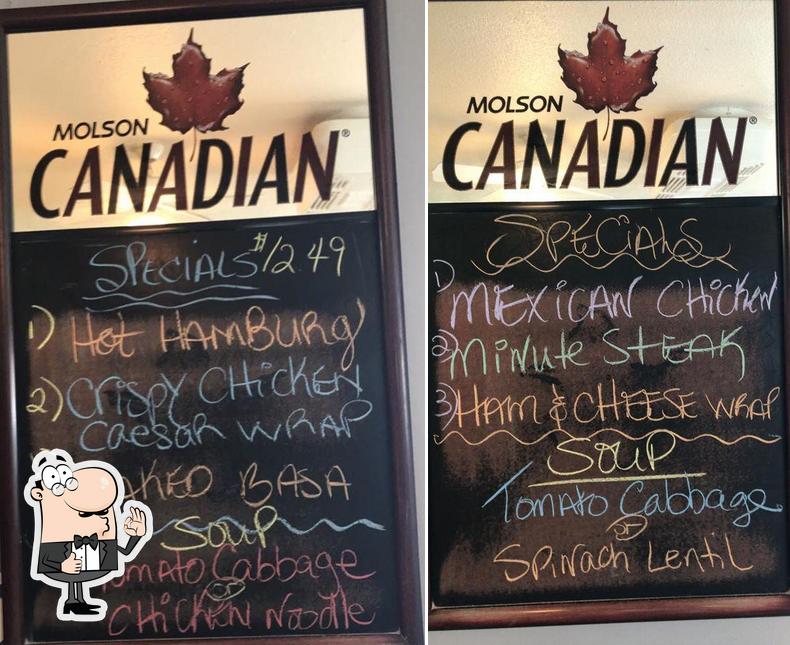 MOLSON
CANADIAN®
SPECIALS $12.49
1) Hot HAMBURG
2) CRISPY CHICKEN
CAESAR WRAP
BASA
SOUP
Cabbage
OR
CHICKEN NOODLE
MOLSON
CANADIAN®
SPECIALS
1) MEXICAN CHICKEN
2) MINUTE STEAK
3) HAM & CHEESE WRAP
SOUP
TOMATO Cabbage
or
SPINACH LENTIL